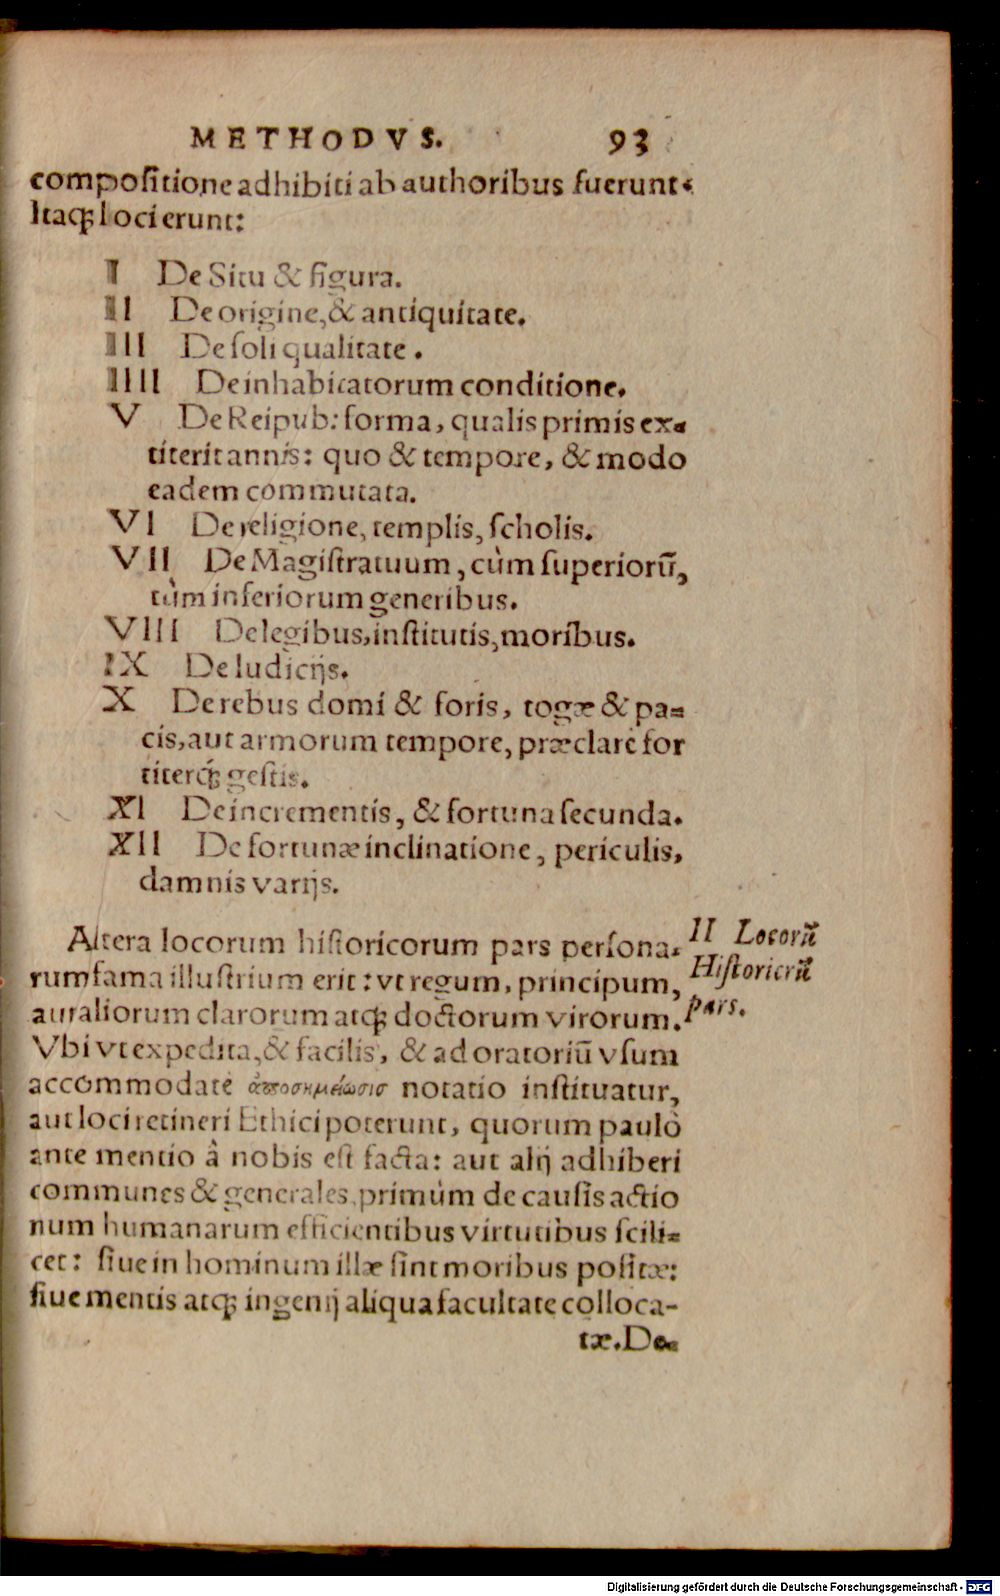 METHODVS. 93
compositione adhibiti ab authoribus fuerunt.
Itaq́; loci erunt:
I De Situ & figura.
II De origine, & antiquitate.
III De soli qualitate.
IIII De inhabitatorum conditione.
V De Reipub: forma, qualis primis ex-
titerit annis: quo & tempore, & modo
eadem commutata.
VI De religione, templis, scholis.
VII De Magistratuum, cùm superiorũ,
tùm inferiorum generibus.
VIII De legibus, institutis, moribus.
IX De Iudicijs.
X De rebus domi & foris, togæ & pa-
cis, aut armorum tempore, præclarè for
titerq́; gestis.
XI De incrementis, & fortuna secunda.
XII De fortunæ inclinatione, periculis,
damnis varijs.
Altera locorum historicorum pars persona-
rum fama illustrium erit: vt regum, principum,
aut aliorum clarorum atq; doctorum virorum.
II Locorũ
Historicrũ
pars.
Vbi vt expedita, & facilis, & ad oratoriũ vsum
accommodatè ἀποσημείωσις notatio instituatur,
aut loci retineri Ethici poterunt, quorum paulò
ante mentio â nobis est facta: aut alij adhiberi
communes & generales, primùm de causis actio
num humanarum efficientibus virtutibus scili-
cet: siue in hominum illæ sint moribus positæ:
siue mentis atq; ingenij aliqua facultate colloca-
tæ. De-
Digitalisierung gefördert durch die Deutsche Forschungsgemeinschaft - DFG